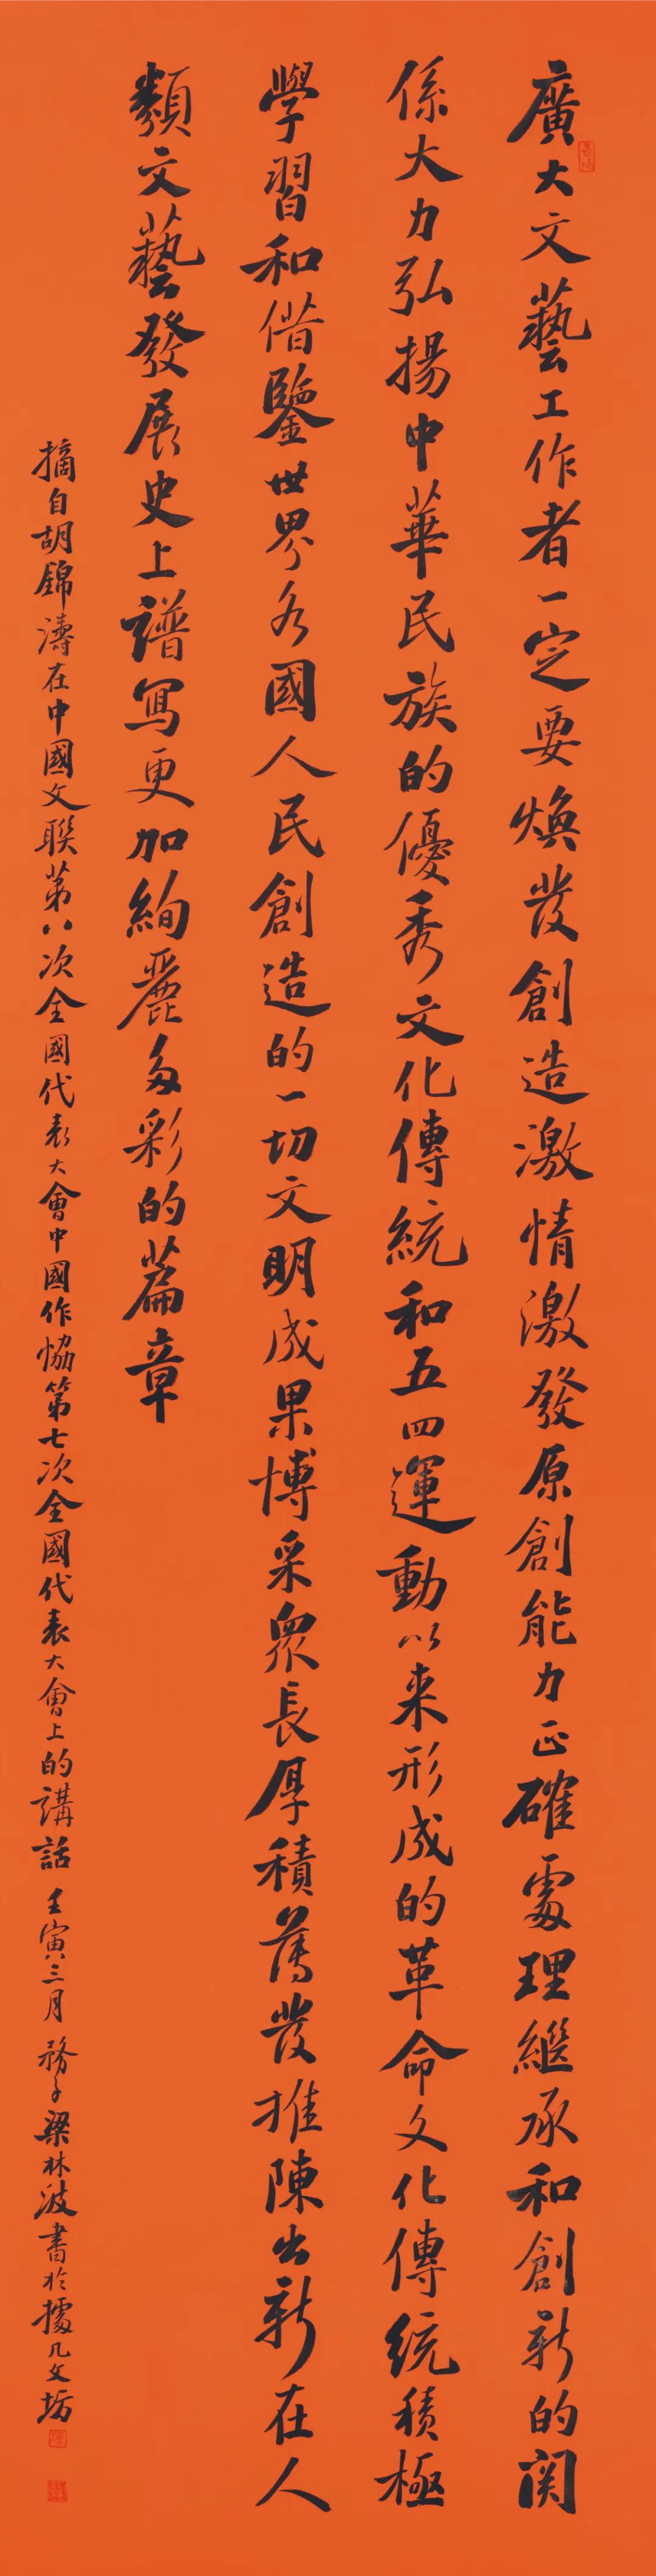 廣大文藝工作者一定要煥發創造激情激發原創能力正確處理繼承和創新的関
係大力弘揚中華民族的優秀文化傳統和五四運動以来形成的革命文化傳統積極
學習和借鑒世界各國人民創造的一切文明成果博采衆長厚積薄發推陳出新在人
類文藝發展史上譜寫更加絢麗多彩的篇章
摘自胡錦濤在中國文聯第八次全國代表大會中國作協第七次全國代表大會上的講話 壬寅三月 務子梁林波書於據几文坊